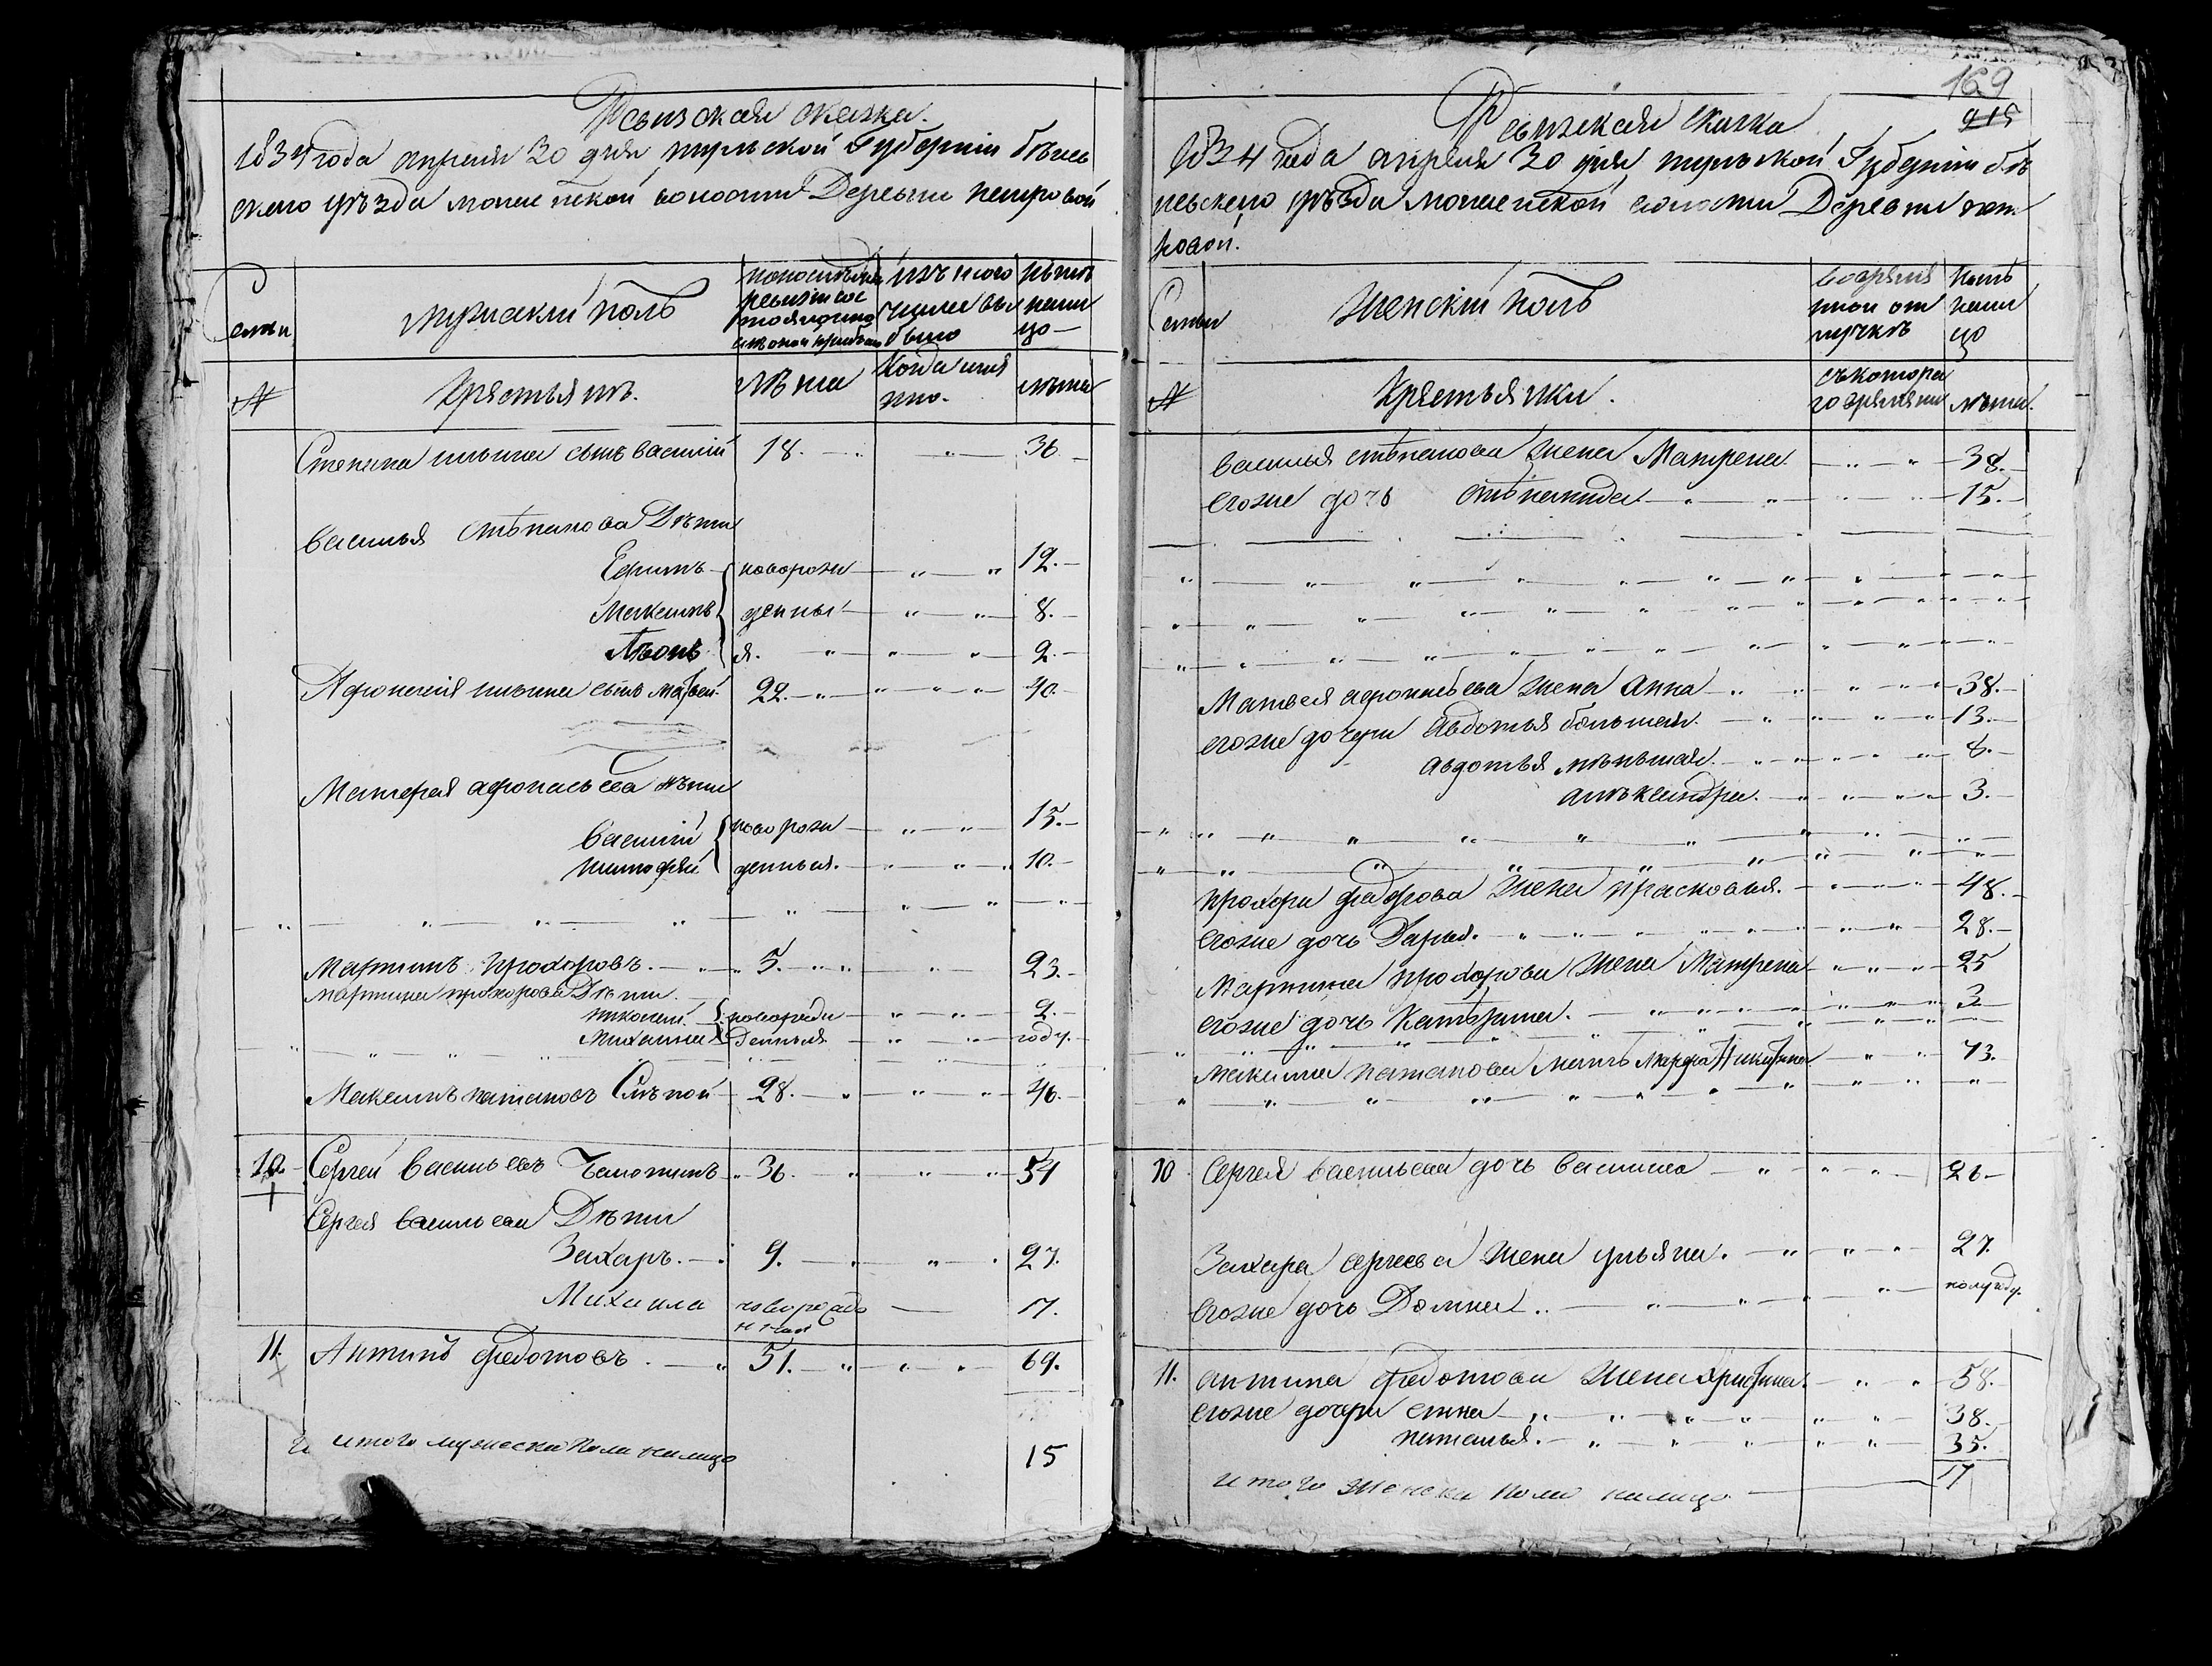 Ревизская сказка.
1834 года апреля 30 дня тульской Губернiи бѣлев
скаго уѣзда волости Деревни петровой
Семьи
мужский полъ
попоследней ревизiи сос тояло и после оной прибыло
изъ того числа вы было
нынѣ нали цо
№
Крестьянѣ.
лѣта
Когда имя нно.
лѣта
Степана ильина сынъ василий 18. 36
василья стѣпанова Дѣти
Ефимъ новорож 12.
Максимъ денны 8.
Лѣонъ я. 2.
Афонасия ильина сынъ матвей 22. 40.
Матфея афонасьева дѣти
василий новорож 15.
тимофей денныя. 10.
Мартинъ прохоровъ. 5. 23.
мартина прохорова Дѣти.
николай новорож 2.
Михаила Денныя году.
Максимъ патаповъ Слѣпой 28. 46.
10. Сергей васильевъ 36. 54
Сергея васильева Дѣти
Захаръ. 9. 27.
Михаила новорожде нной 17.
11. Антипъ федотовъ. 51. 69.
итого мужеска пола налицо 15
169
215
Ревизская сказка
1834 года апреля 30 дня тульской Губернiи бѣ
левскаго уѣзда волости Деревни пет
ровой.
Семьи
Женскiй полъ
вовремя ной от лучкѣ
нынѣ нали цо
№
Крестьянки.
съкотора го времяни
лѣта.
василья стѣпанова жена Матрена 38.
егоже дочь стѣпанида 15.
Матвея афонасьева жена Анна 38.
егоже дочери Авдотья большая. 13.
авдотья мѣньшая. 8.
алѣксандра. 3.
прохора фадорова жена прасковья. 48.
егоже дочь Дарья. 28.
Мартина прохорова жена Матрена 25
егоже дочь Катѣрина. 3
макима патапова мать марфа Никитина 73.
10 Сергея васильева дочь василиса 26
Захара сергеева жена ульяна. 27.
егоже дочь Домна полугоду.
11. антипа федотова жена христина. 58.
егоже дочери анна 38.
наталья. 35.
итого женска пола налицо 17